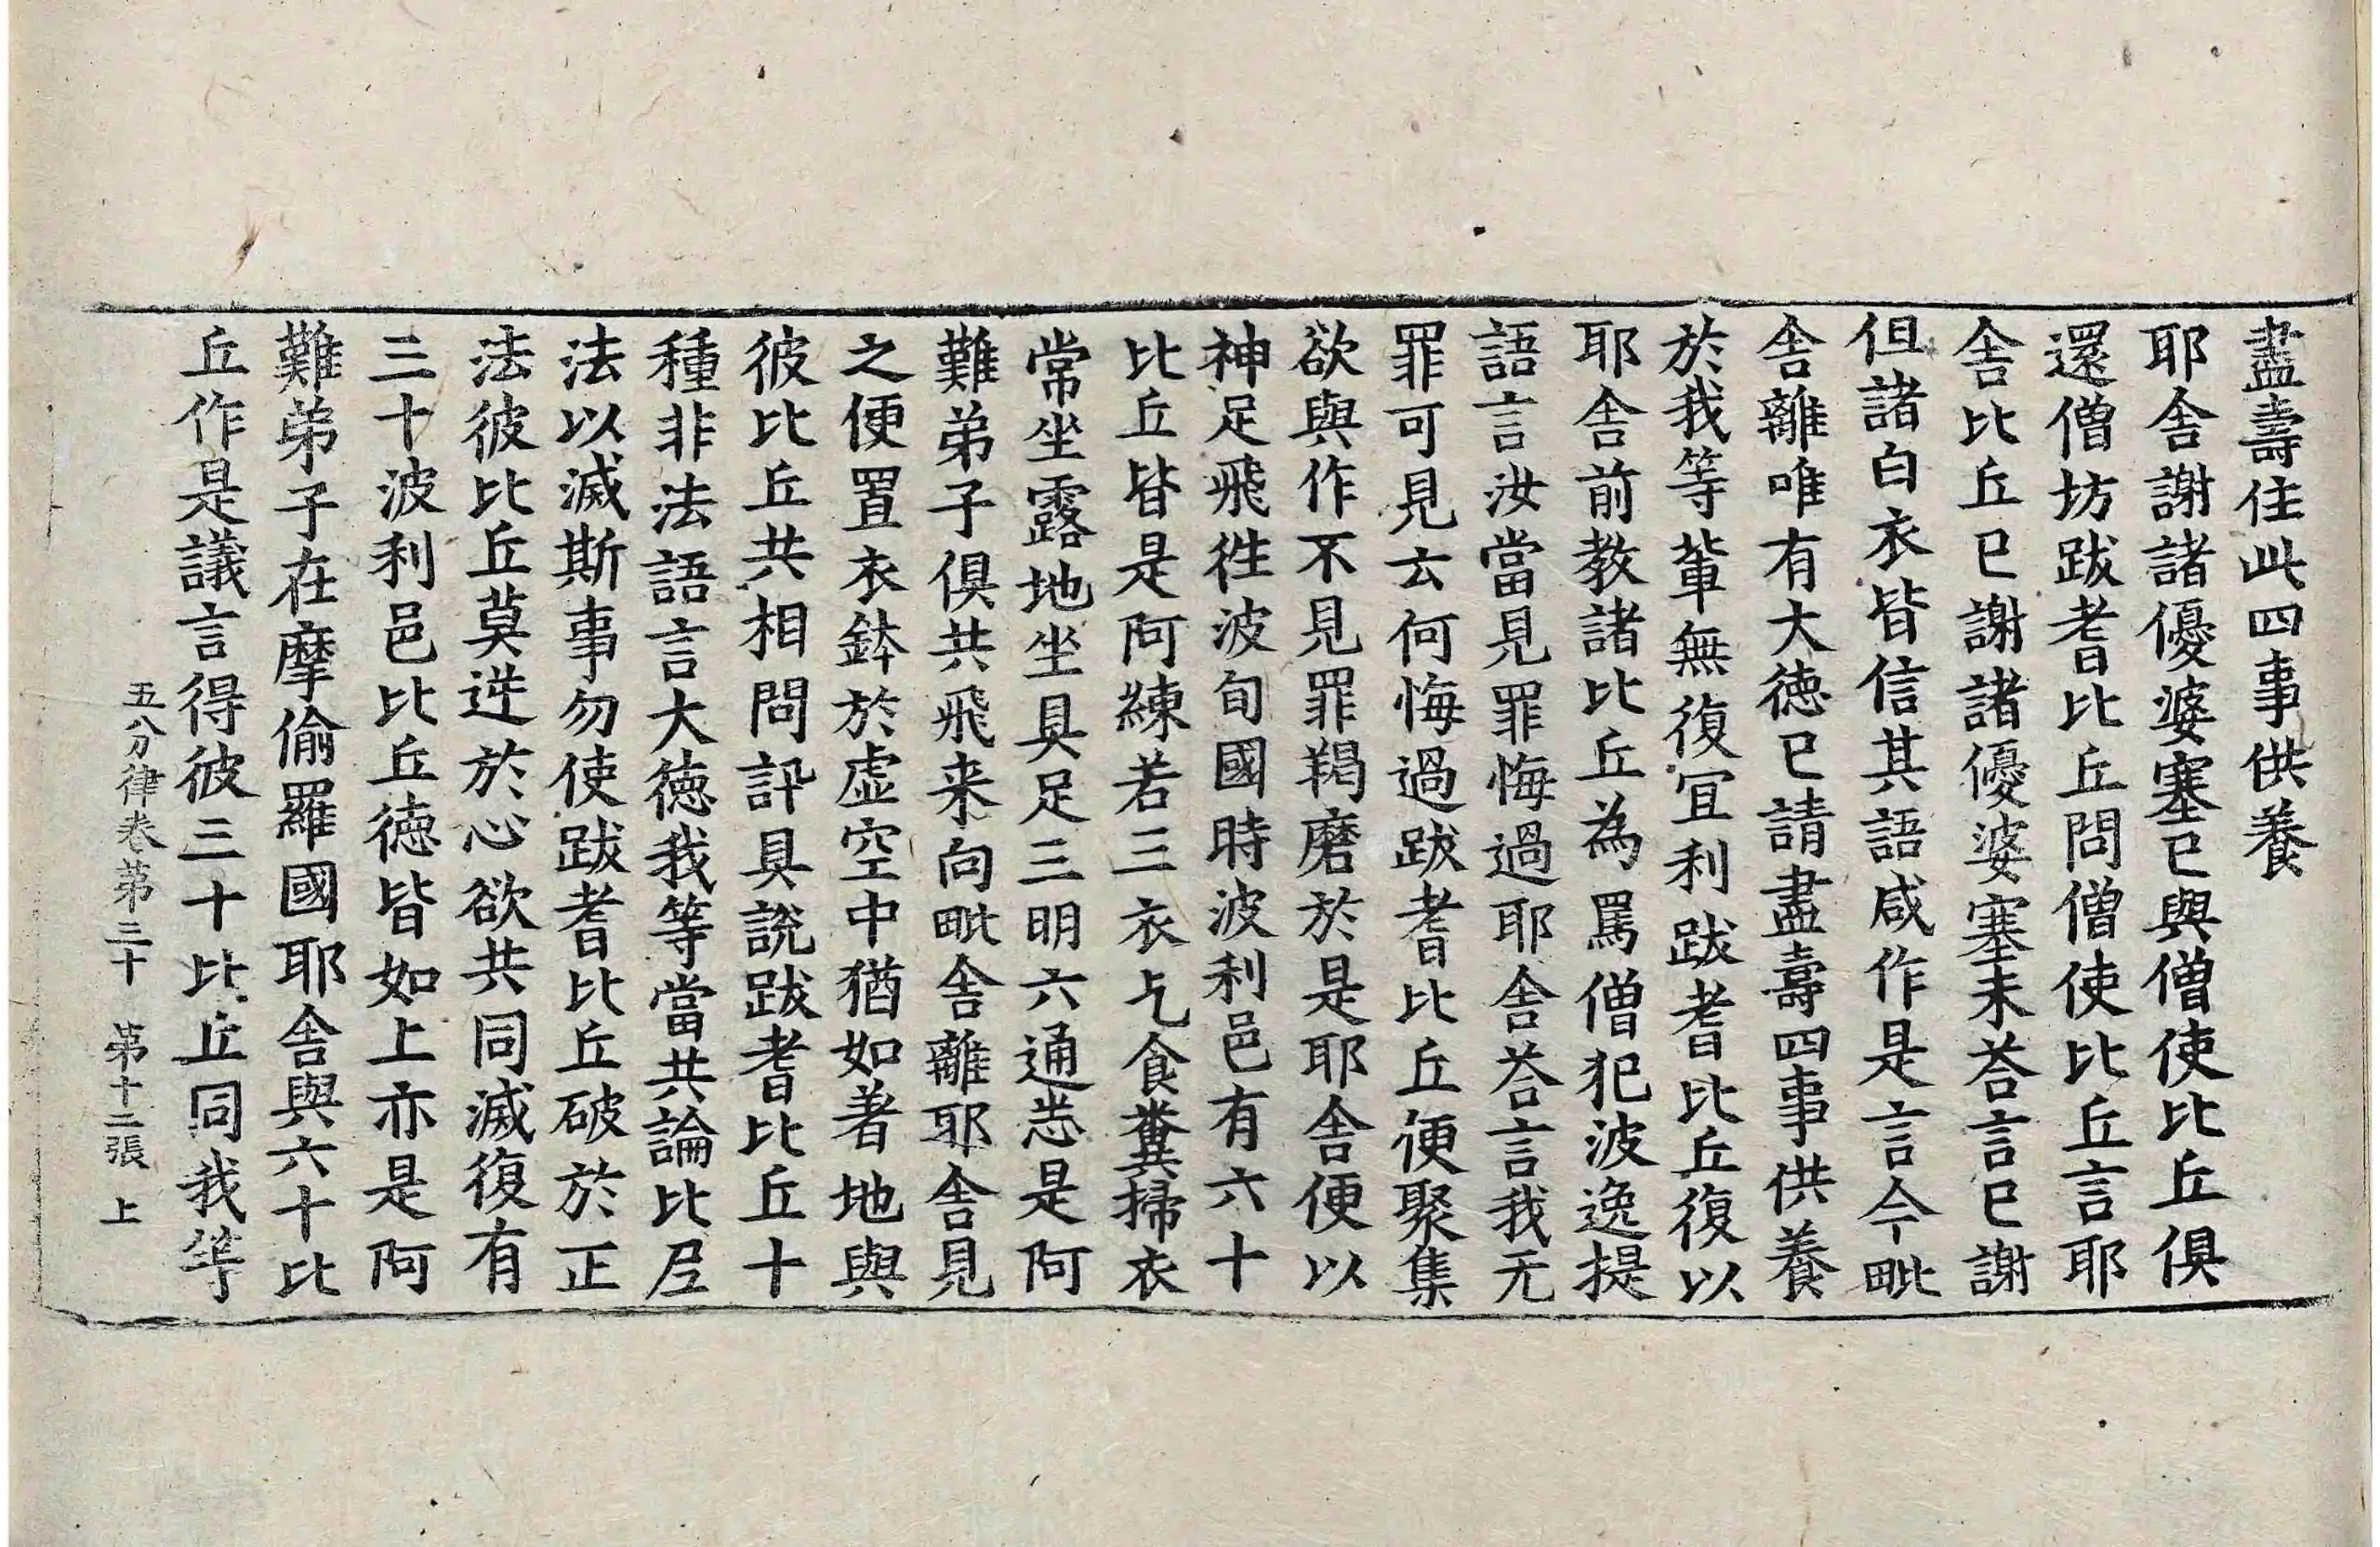 盡壽住此四事供養
耶舍謝諸優婆塞已與僧使比丘俱
還僧坊跋耆比丘問僧使比丘言耶
舍比丘已謝諸優婆塞未荅言已謝
但諸白衣皆信其語咸作是言今毗
舍離唯有大徳已請盡壽四事供養
於我等輩無復冝利跋耆比丘復以
耶舍前教諸比丘為罵僧犯波逸提
語言汝當見罪悔過耶舍荅言我无
罪可見云何悔過跋耆比丘便聚集
欲與作不見罪羯磨於是耶舍便以
神足飛徃波旬國時波利邑有六十
比丘皆是阿練若三衣乞食糞掃衣
常坐露地坐具足三明六通悉是阿
難弟子俱共飛来向毗舍離耶舍見
之便置衣鉢於虛空中猶如著地與
彼比丘共相問訊具說跋耆比丘十
種非法語言大徳我等當共論比尼
法以滅斯事勿使跋耆比丘破於正
法彼比丘莫逆於心欲共同滅復有
三十波利邑比丘徳皆如上亦是阿
難弟子在摩偷羅國耶舍與六十比
丘作是議言得彼三十比丘同我等
五分律卷第三十 第十二張 上